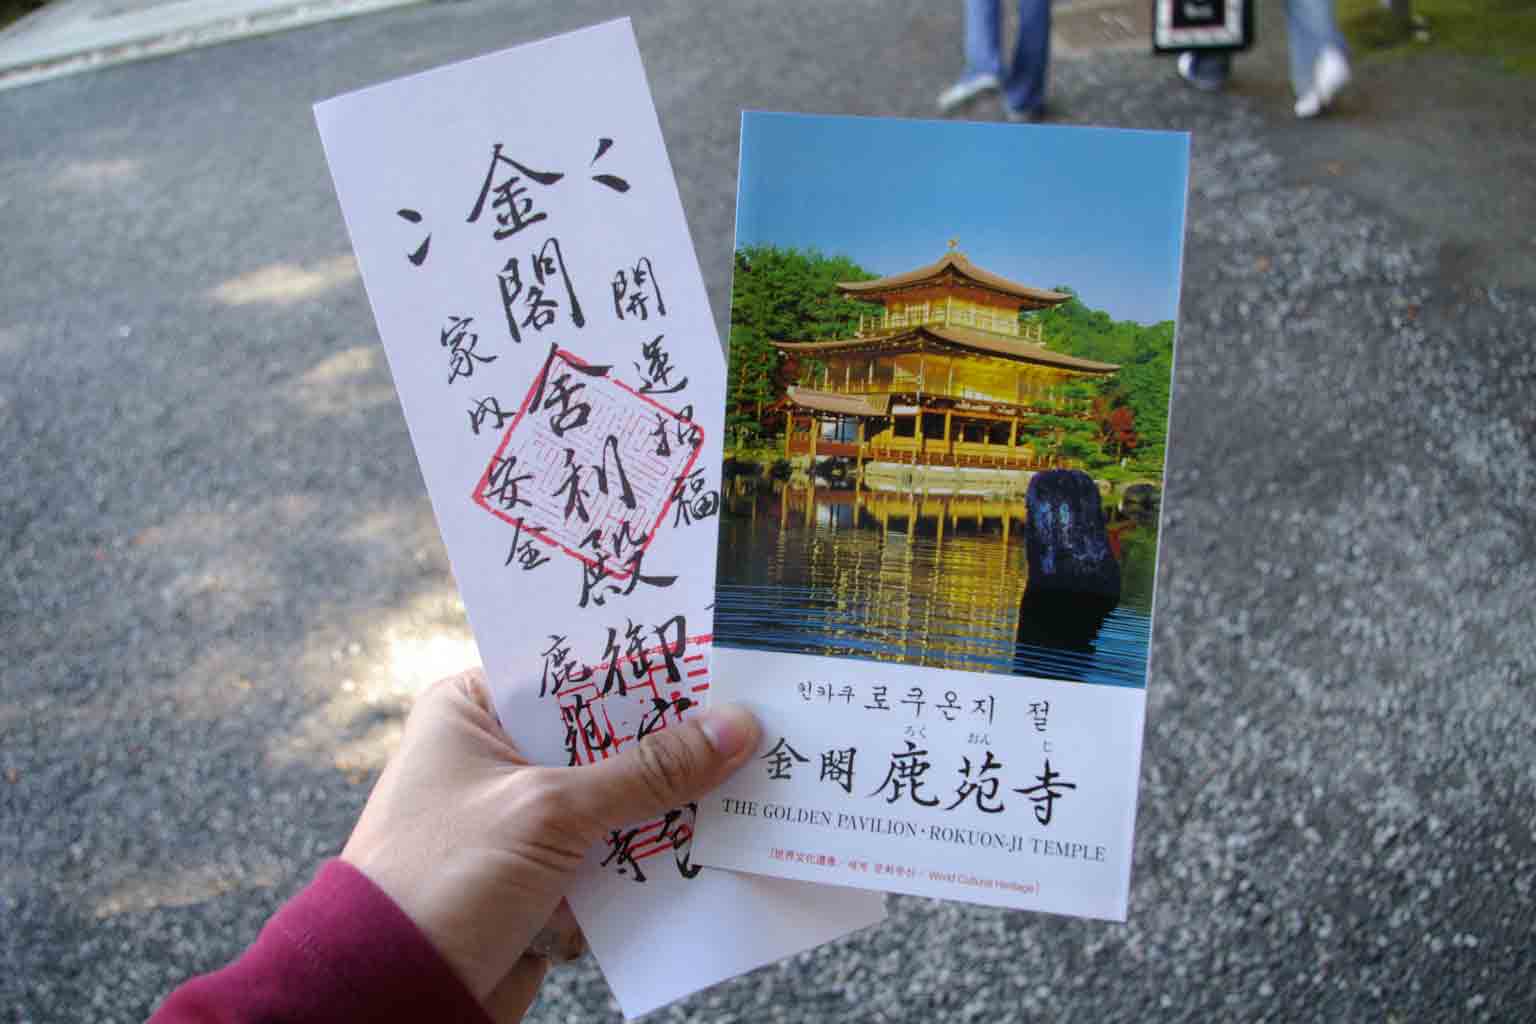 金閣舎利殿御守
開運招福
家内安全
鹿苑寺
킨카쿠 로쿠온지 절
ろく おん じ
金閣 鹿苑寺
THE GOLDEN PAVILION・ROKUON-JI TEMPLE
[世界文化遺産・세계 문화유산・World Cultural Heritage]